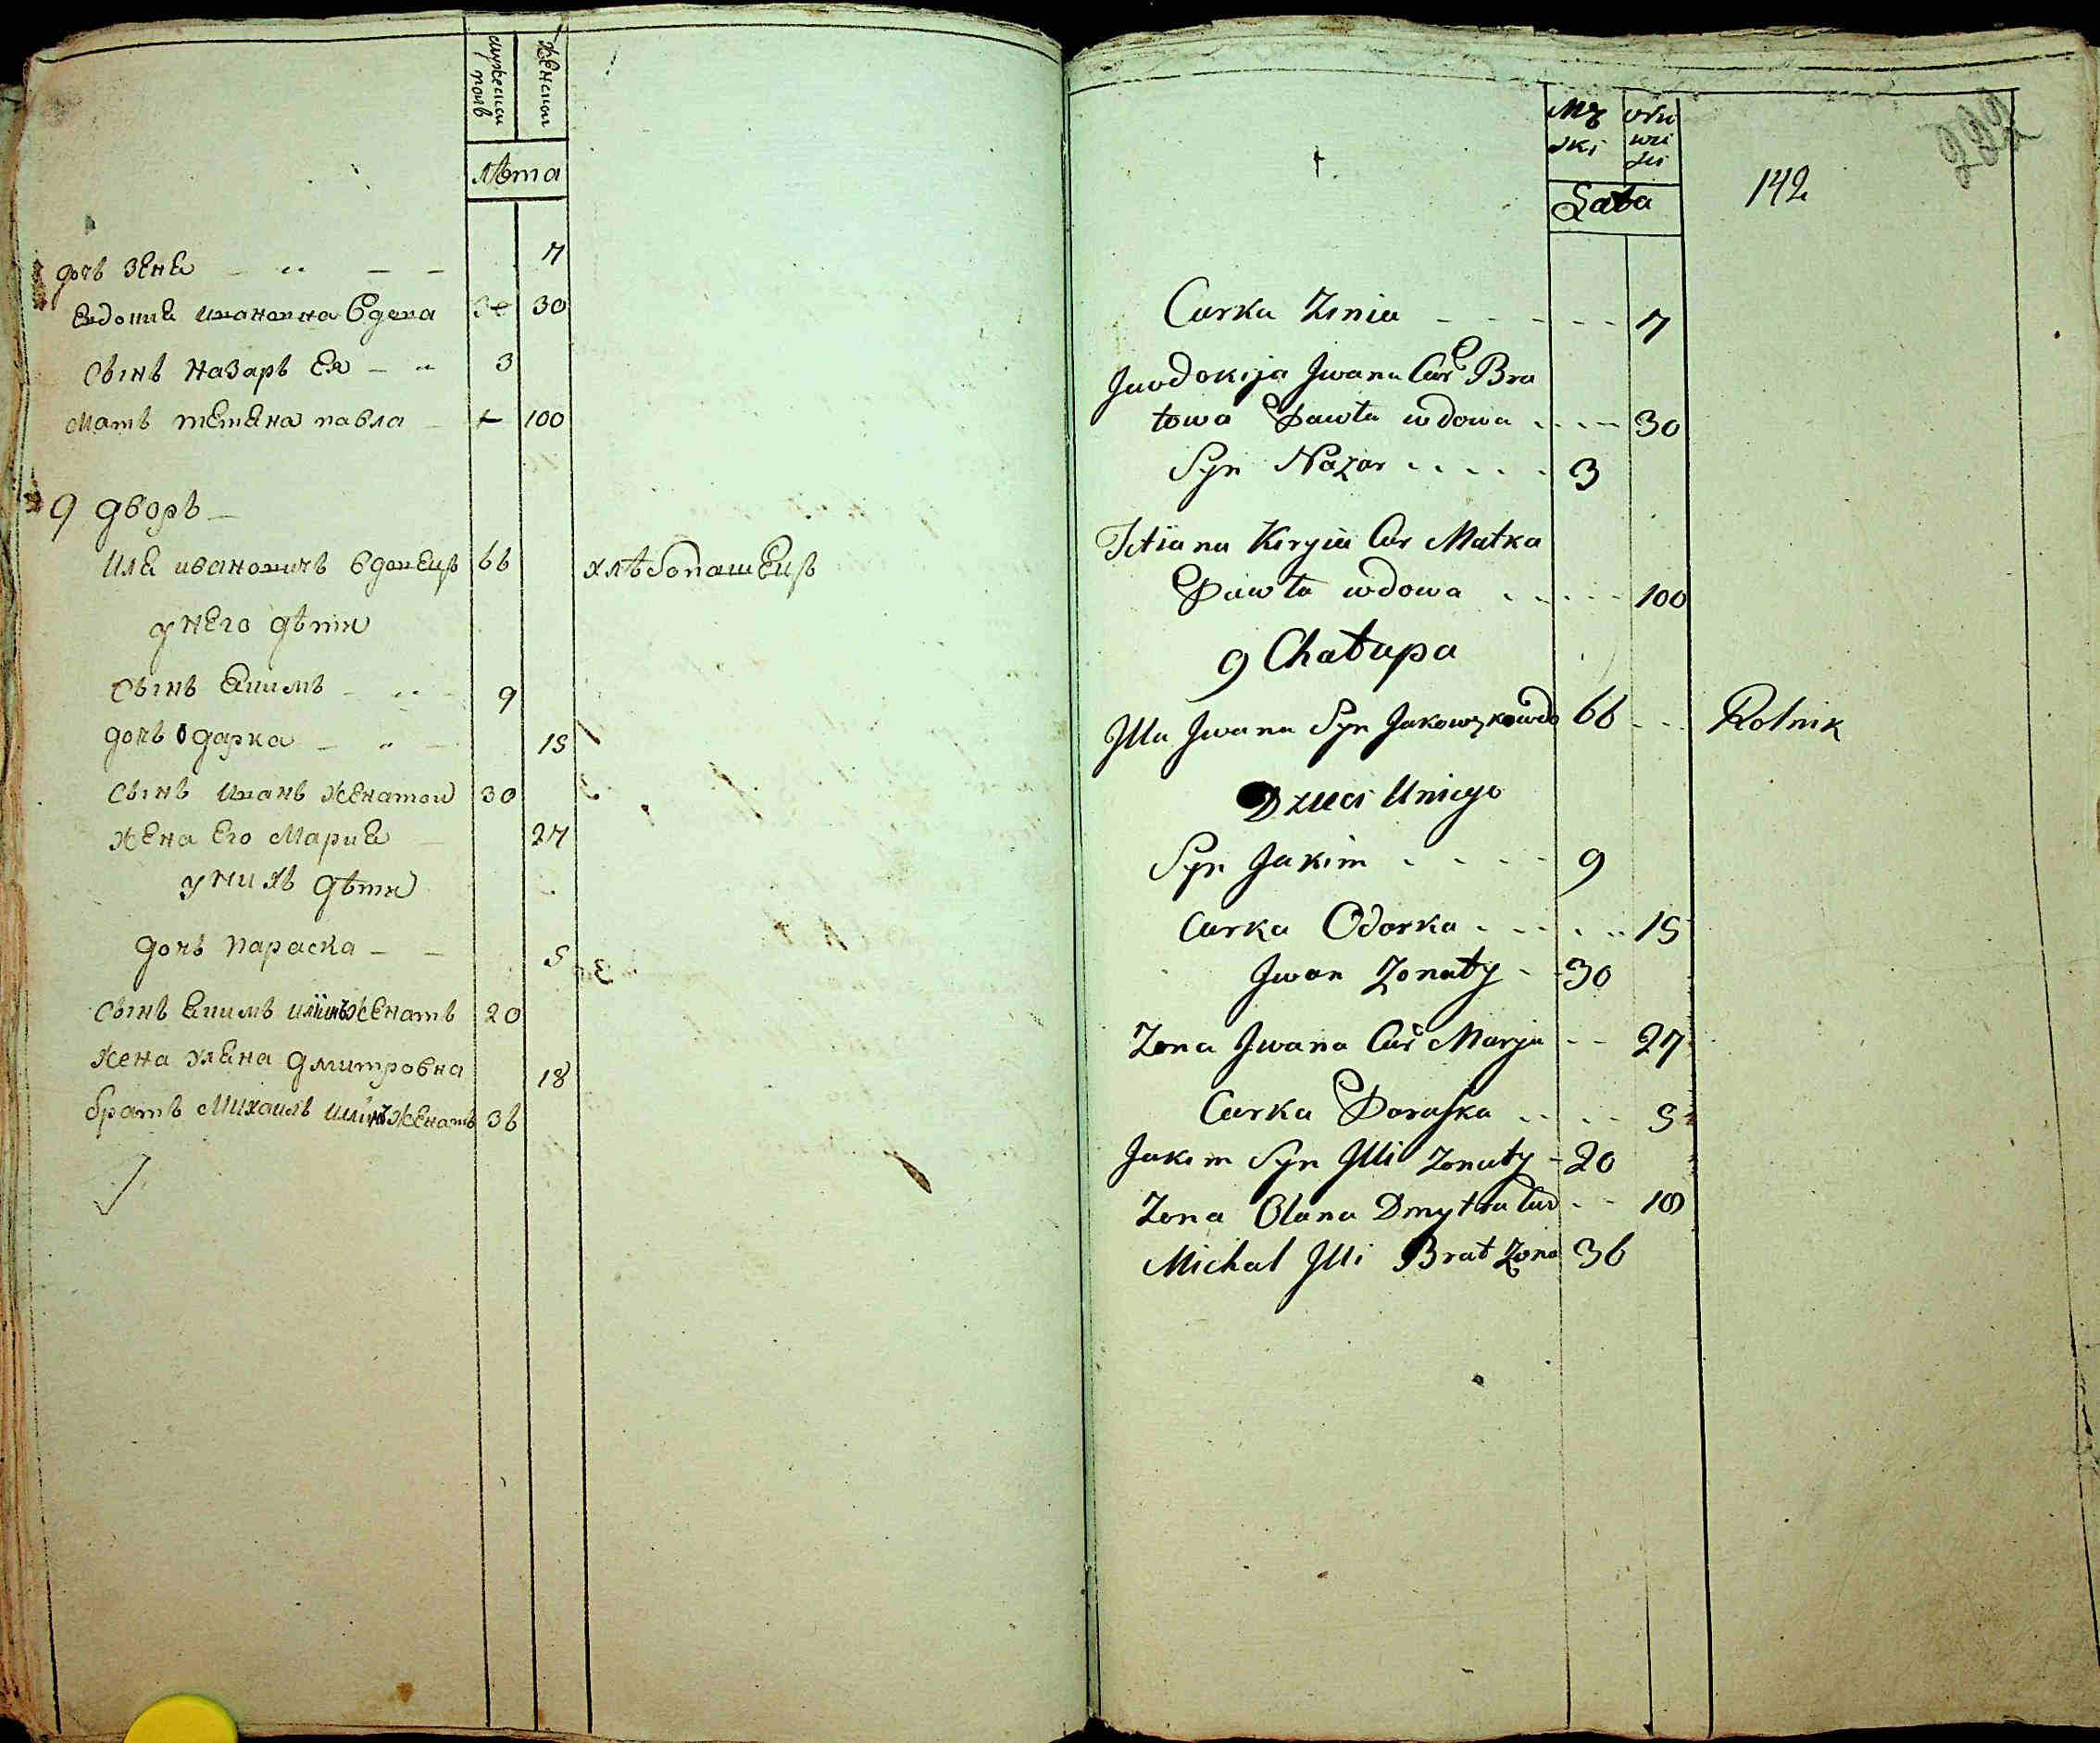 мужески полъ
женски
лѣта
дочь Зеня 7
Евдокия Ивановна вдова 30
Сынъ Назаръ Ея 3
Мать тетяна павла 100
9 дворъ
Иля ивановичъ вдовецъ 66 хлѣбопашецъ
у него дѣти
Сынъ Якимъ 9
дочь Одарка 15
Сынъ Иванъ женатой 30
жена Его Мария 27
у нихъ дѣти
дочь параска 5
Сынъ Якимъ женатъ 20
жена Уляна дмитровна 18
братъ Михаилъ женатъ 36
222
142
Mę
ski
Lata
Curka Zinia 7
Jawdokija Jwana Cur Bra
towa Pawła wdowa 30
Syn Nazar 3
Tetiana Cur Matka
Pawła wdowa 100
9 Chałupa
Jlla Jwana Syn 66 Rolnik
Dzieci Uniego
Syn Jakim 9
Curka Odorka 15
Jwan Zonaty 30
Zona Jwana Cur Marya 27
Curka Paraska 5
Jakim Syn Jlli Zonaty 20
Zona Olana Dmytra Cur 18
Michal Jlli Brat Zona 36